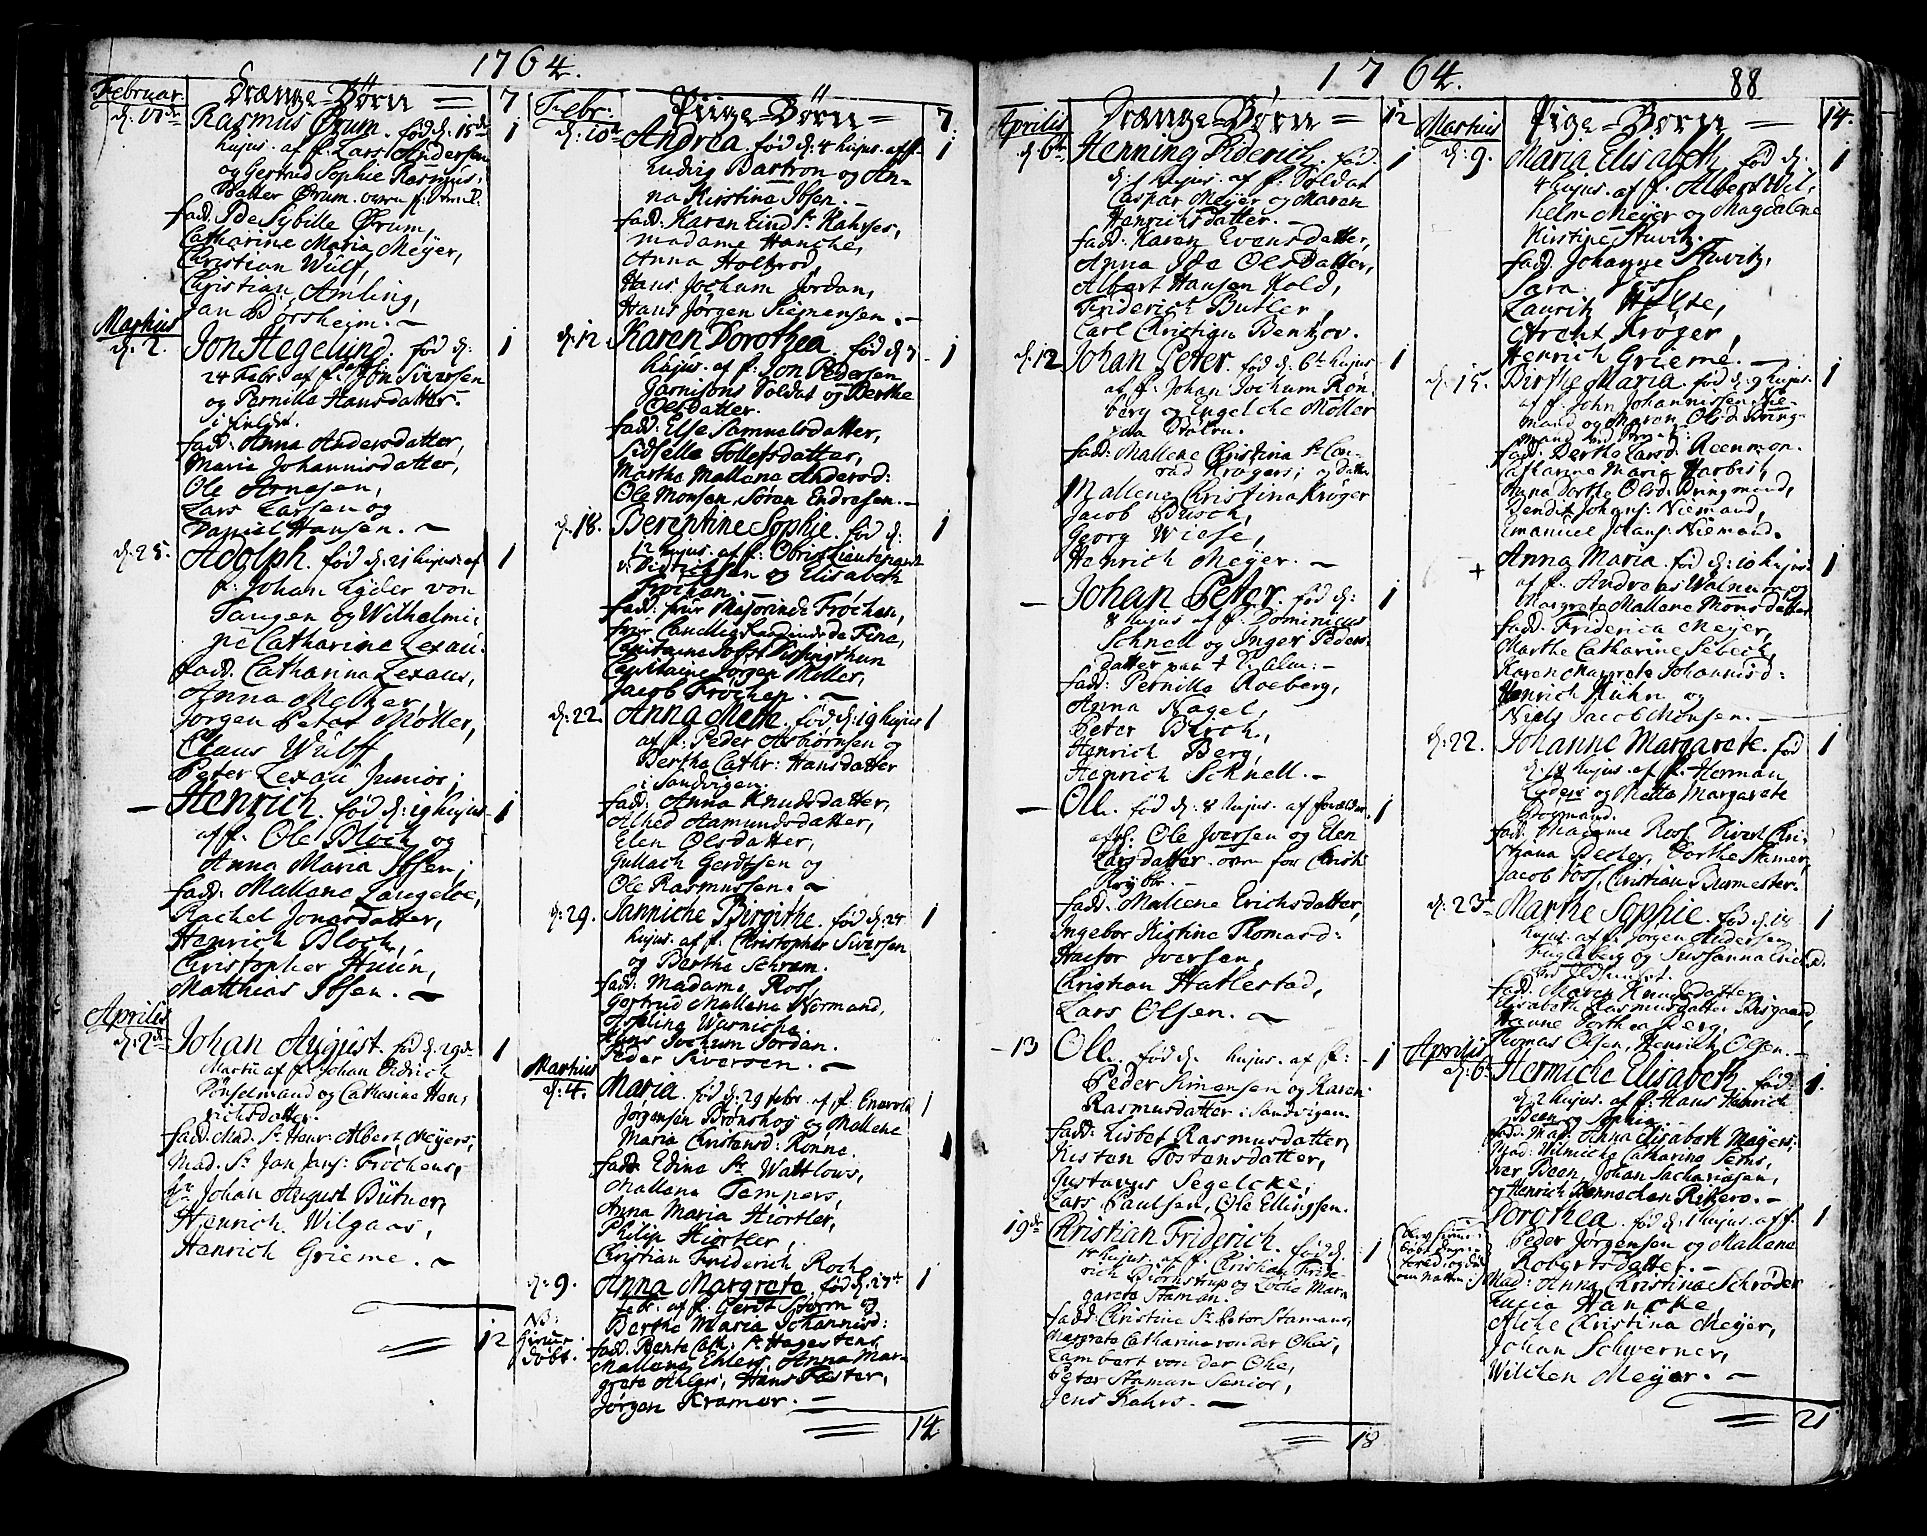 1764.
Februar.
Drænge-Børn
7
d: 17de
Rasmus Ørum. fød d: 15de
1
hujus. af f. Lars Andersen
og Gertrud Sophie Rasmus-
Datter Ørum.
fadd. Ide Sybille Ørum,
Catharine Maria Meyer,
Christian Wulf,
Christian Amling,
Jan Dorsheim. —
Martius
d. 2.
Jon Hegelund. fød d:
1
24 Febr. af f. Jon Siversen
og Pernilla Hansdatter.
fadd: Anna Andersdatter,
Maria Johannisdatter,
Ole Arnesen,
Lars Larsen og
Daniel Hansen. —
d: 25.
Adolph. fød d: 21 hujus. af
1
f: Johan Lyder von
Tangen og Wilhelmi-
ne Catharine Lexau.
fadd. Catharina Lexaus,
Anna Meltzer,
Jørgen Peter Møller,
Claus Wulff,
Peter Lexau Junior;
— Henrich. fød d: 19 hujus
1
af f. Ole Bloch og
Anna Maria Ibsen;
fadd: Mallene Langeloe,
Rachel Jonasdatter,
Henrich Bloch,
Christopher Huun,
Matthias Ibsen. —
Aprilis
d: 2de
Johan August. fød d: 29de
1
Martii af f. Johan Didrich
Pønselmand og Catharine Hen-
richsdatter.
fadd. Mad. Sr Henr: Albert Meyers;
Mad. Sr Jan Jans: Frøchens,
Hr Johan August Bütner,
Henrich Wilgaas,
Henrich Grieme. —
12
Febr:
Piige-Børn
7.
d: 10de
Andrea. fød d: 4 hujus. af f.
1
Ludvig Bastron og An-
na Kirstina Ibsen. —
fadd: Karen Lind Sr Kahrses,
Madame Hanche,
Anna Holtzrod,
Hans Jochum Jordan,
Hans Jørgen Siemensen. —
d: 12
Karen Dorothea. fød d 7
1
hujus. af f: Jon Pedersen
Garnisons Soldat og Berthe
Olsdatter.
fadd: Else Samuelsdatter,
Sidselle Tollefsdatter,
Marthe Mallene Andersd:
Ole Monsen, Søren Endresen. —
d: 18.
Berentine Sophie. fød d:
1
12 hujus. af f: Obrist Lieutinant
v. Didrichsen og Elisabeth
Frøchen. —
fadd: frue Majorinde Frøchen,
frue Cancelieraadinde de Fine,
Capitaine
Capitaine Jørgen Möller,
Jacob Frøchen. —
d: 22.
Anna Meth. fød d: 19 hujus
1
af f: Peder Asbiørnsen og
Berthe Cathr: Hansdatter
i Sandvigen;
fadd: Anna Knudsdatter,
Alhed Aamundsdatter,
Elen Olsdatter,
Gullach Gerdtsen og
Ole Rasmussen. —
d: 29.
Janniche Birgithe. fød d: 24
1
hujus. af f. Christopher Siversen
og Berthe Schram.
fadd: Madame Roos,
Gertrud Mallena Normand,
Wernicke.
Hans Jochum Jordan.
Peder Siversen. —
Martius
d: 4.
Maria. fød d: 29 febr. af f. Enevold
1
Jørgensen Brønshog og Mallene
Maria Christensd: Rønne.
1
fadd: Edina Sr Wattlows,
Mallena Tempers,
Anna Maria Hiortler,
Philip Hiortler,
Christian Friderich Roch.
d: 9.
Anna Margreta. fød d: 27de
1
NB:
hjemme
døbt.
Febr. af f. Gerdt Storm og
Berthe Maria Johannisd:
fadd: Bente Cath: Sr Hagestens,
Mallena Ehlers, Anna Mar-
greta Ahlers, Hans Fester,
Jørgen Kramer. —
14
1764.
88
Aprilis
Drænge-Børn
12
d: 6te
Henning Diderich. fød.
1
d: 1 hujus. af f: Soldat
Caspar Meyer og Maren
Henrichsdatter. —
fadd: Karen Evensdatter,
Anna Ide OlsDatter,
Albert Hansen Kold,
Friderich Butler,
Carl Christian Bentzov.
d: 12
Johan Peter. fød d: 6te hujus
1
af f. Johan Jochum Røn-
berg og Engelche Møller
paa Støhen.
fadd: Mallene Christina Sr Con-
rad Krøgers; og datter
Mallene Christina Krøger
Jacob Busch,
Georg Wiese,
Henrich Meyer. —
— Johan Peter. fød d:
1
8 hujus af f. Dominicus
Schnell og Inger Peders-
datter
fadd: Pernilla Roeberg,
Anna Nagel,
Peter Birch,
Henrich Berg,
Henrich Schnell. —
— Olle. fød d: 8 hujus. af
1
af f: Ole Iversen og Elen
Larsdatter.
fadd: Mallene Erichsdatter,
Ingebor Kistine Thomasd:
Halfor Iversen,
Christian Hatlestad,
Lars Olsen. —
— 13
Olle. fød d. hujus. af f:
1
Peder Simensen og Karen
Rasmusdatter i Sandvigen.
fadd: Lisbet Rasmusdatter,
Kisten Tostensdatter,
Gustavus Segelcke,
Lars Paulsen, Ole Ellingsen.
19de
Christian Friderich. fød d:
1
hujus. af f. Christian Fride-
rich Biørnstrup og Lødche Mar-
gareta Staman.
fadd: Christine Sr Peter Stamans,
Margrete Catharina von der Ohes,
Lambert von der Ohe,
Peter Staman Senior,
Jens Kahrs. —
18
Martius
Pige-Børn
14.
d: 9.
Maria Elisabeth. fød d.
1
4 hujus. af f. Albert Wil-
helm Meyer og Magdalene
Kirstine Stuvitz.
fadd. Johanne Stuvitz,
Sara
Lauritz Holste,
Arent Krøger,
Henrich Grieme. —
d: 15.
Birthe Maria. fød d: 9 hujus.
1
af f. John Johannissen Nie-
mand og Maren Olsd: Bring-
mand
fadd: Berthe Larsd: Reenmon.
Catharine Maria Harbes,
Anna Dorthe Olsd: Bringmand,
Bendix Johans: Niemand,
Emanuel Johans: Niemand.
+
Anna Maria. fød d: 10 hujus.
1
af f. Andreas Walnum og
Margrete Mallene Monsdatter
fadd: Friderica Meyer,
Marthe Catharine Sebech,
Karen Margrete Johannisd:
Henrich Kühn og
Niels Jacob Monsen. —
d: 22.
Johanne Margarete. fød
1
d: 18 hujus. af f. Herman
Lyders og Metta Margarete
Bogmand.
fadd: Madame Roos, Sivert Chri-
stiana Becher, Dorthe Stamer,
Jacob Foss, Christian Burmester.
d: 23
Marthe Sophie. fød d: 18
1
hujus. af f. Jørgen Andersen
Fugleberg og Sussanna Erichsd:
fadd: Maren Knudsdatter,
Elisabeth Rasmusdatter Risgaard,
Hanne Dorthea Berg,
Thomas Olsen, Henrich Olsen. —
Aprilis
d: 6te
Hermiche Elisabeth. fød
1.
d: 2 hujus. af f: Hans Hinrich
Been og Sophia
fadd: Mad: Anna Elisabeth Mayers,
Mad: Wilmiche Catharina Sems,
Iver Been, Johan Sachariasen,
og Henrich Rennechen Riskero. —
Dorothea. fød d: 1 hujus. af f.
1
Peder Jørgensen og Mallene
Robertsdatter. —
Mad: Anna Christina Schrøder
Lucia Hancke,
Alche Christina Meyer,
Johan Schwerner,
Wilchen Meyer. —
21